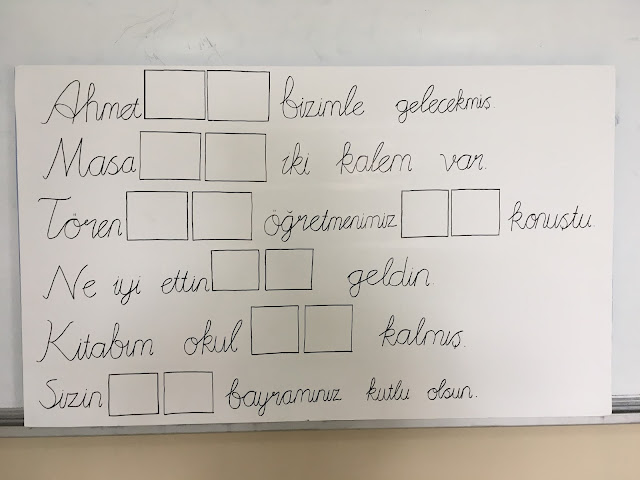 Ahmet bizimle gelecekmiş.
Masa iki kalem var.
Tören öğretmenimiz konuştu.
Ne iyi ettin geldin.
Kitabım okul kalmış.
Sizin bayramınız kutlu olsun.